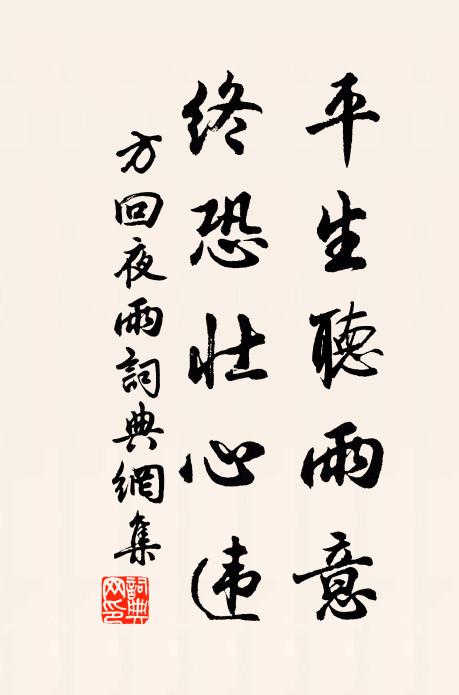 平生聽雨意
終恐壯心违
方回夜雨詞典網集
詞典网印